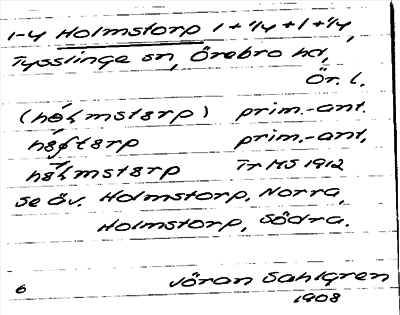 1-4 Holmstorp 1 + 1/4 + 1 + 1/4,
Tysslinge sn, Örebro hd,
Ör. l.
(hólmstərp) prim.-ant.
prim.-ant,
hólmstərp Tr MS 1912
se äv. Holmstorp, Norra,
Holmstorp, Södra.
6 Jöran Sahlgren
1908